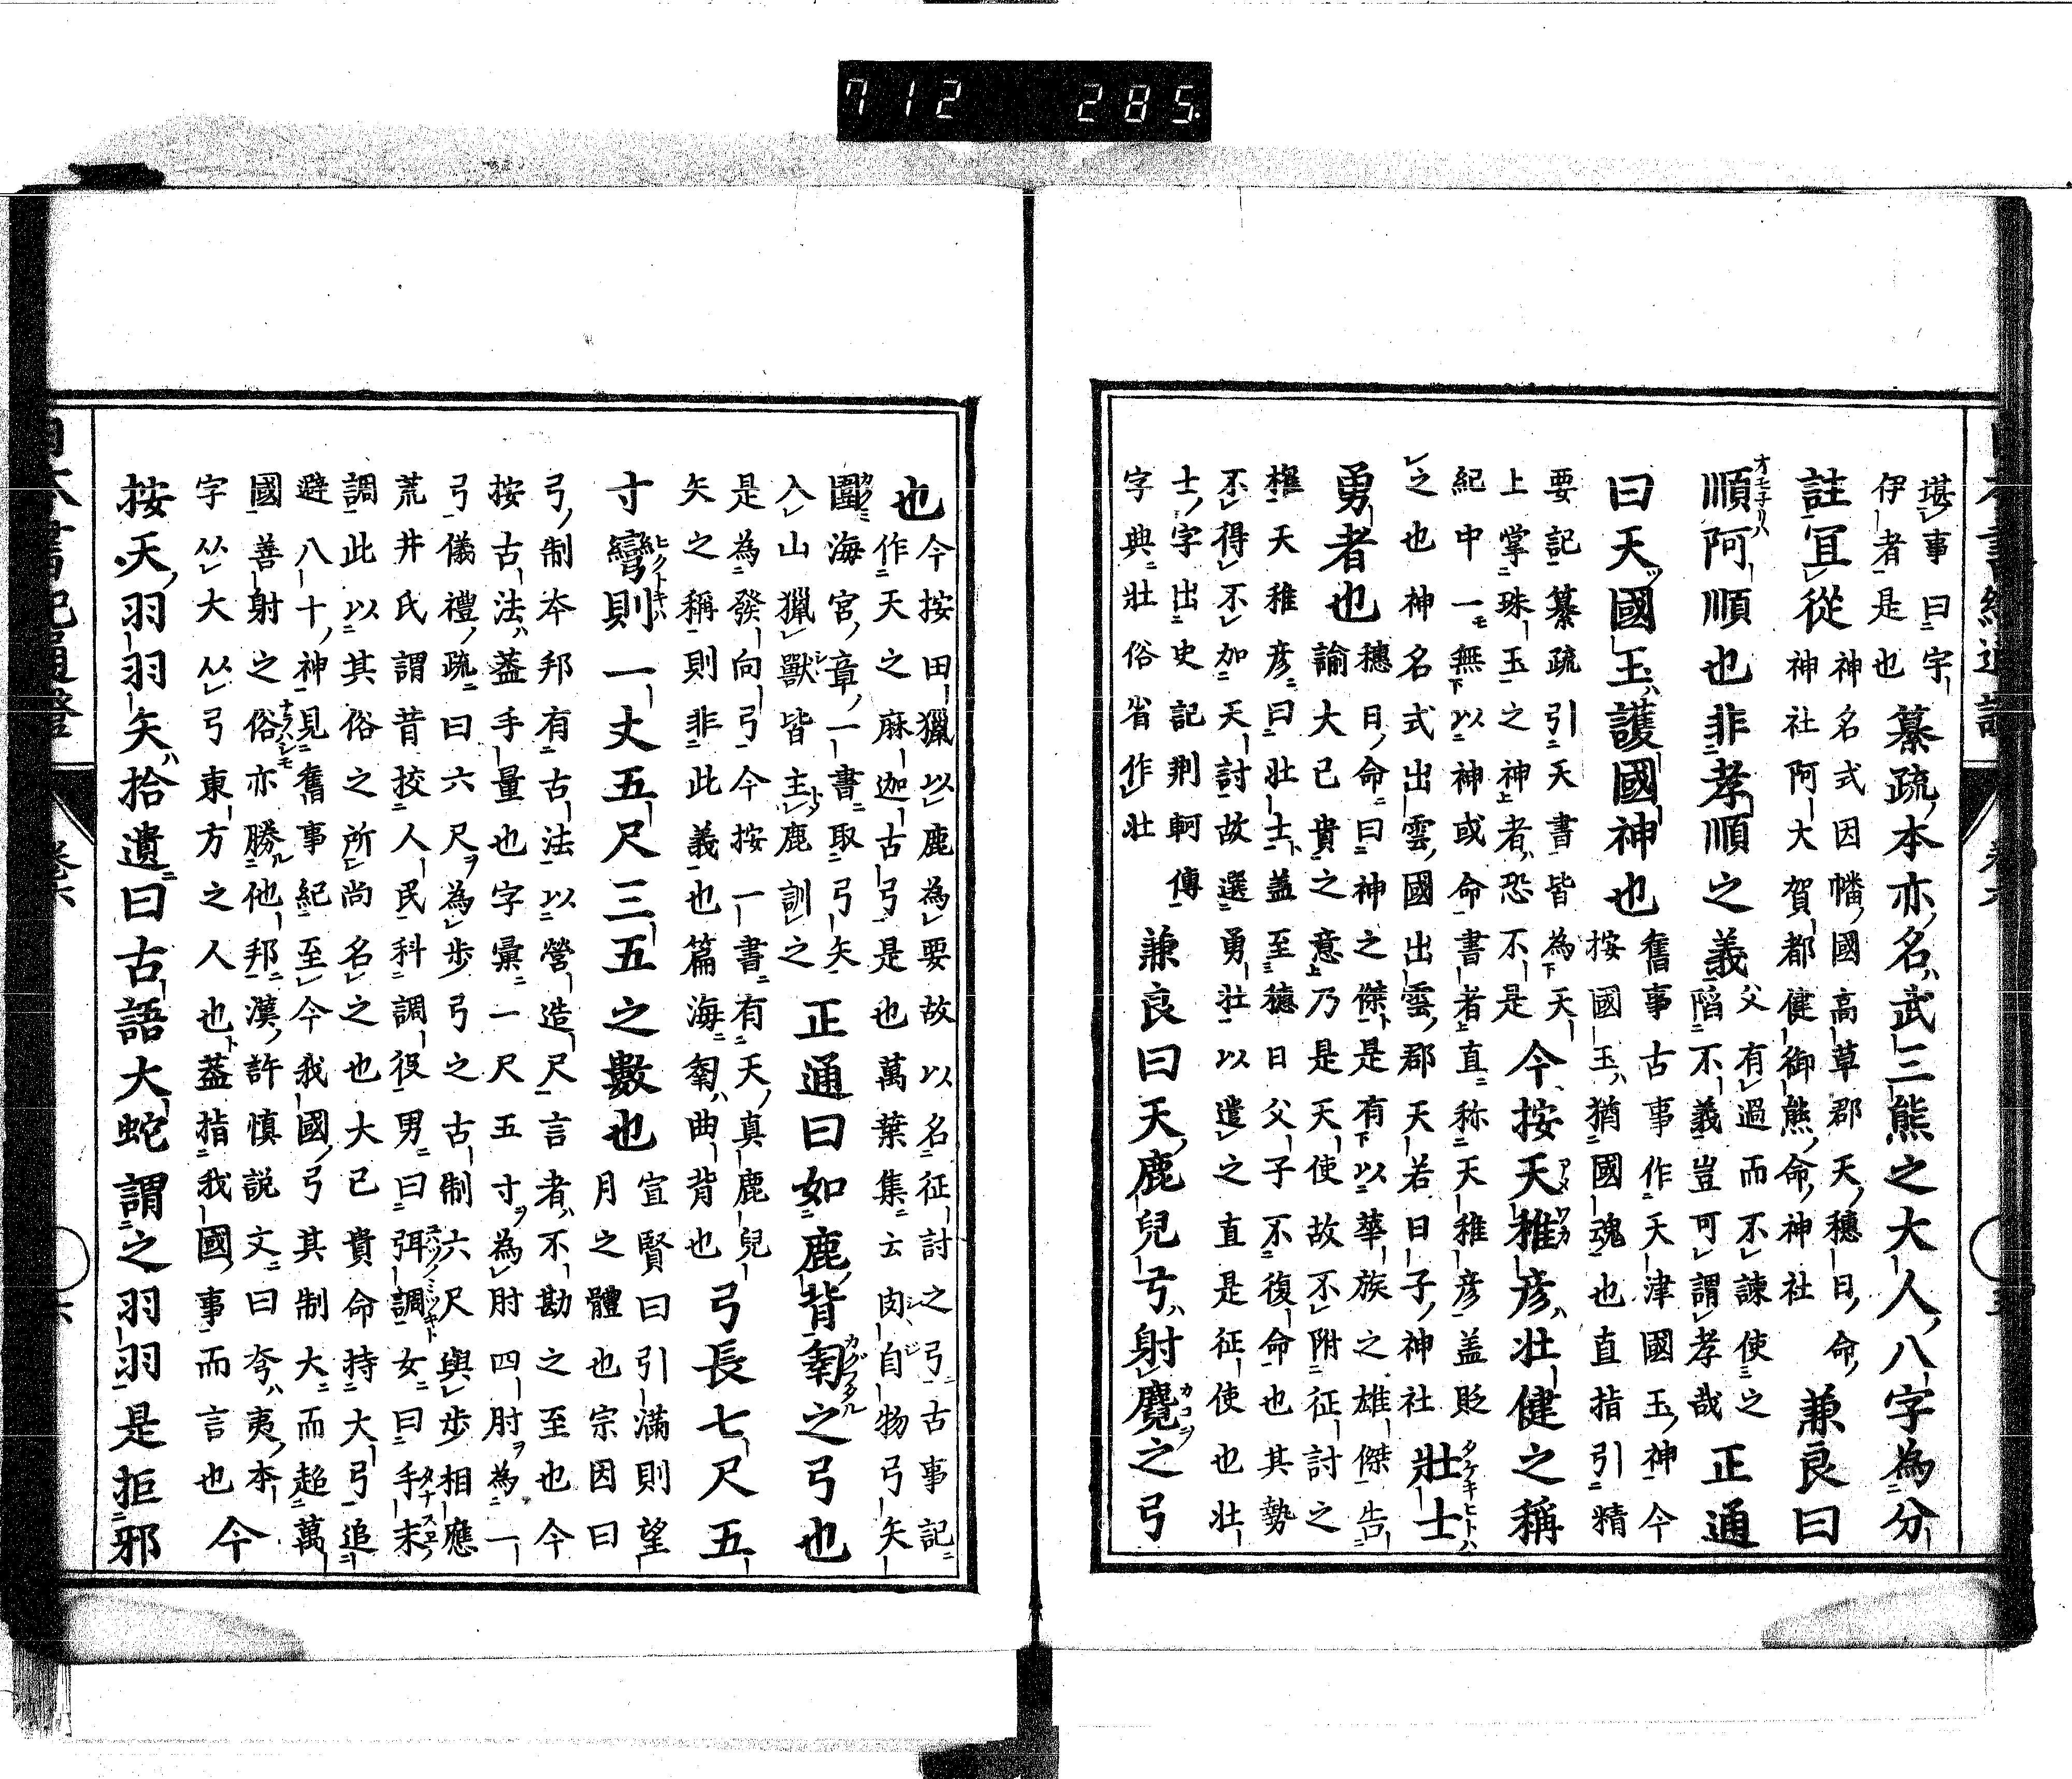 堪事曰字
伊者是也
纂疏本亦名武三熊之大人八字為分
註宜從
神名式因幡國高草郡天穗日命
神社阿大賀都健御熊命神社
兼良曰
順阿順也非孝順之義
父有過而不諫使之
陷不義豈可謂孝哉
正通
曰天國玉護國神也
舊事古事作天津國玉神今
按國玉猶國魂也直指引精
要記纂疏引天書皆為天
上掌珠玉之神者恐不是
今按天稚彦壯健之稱
紀中一無以神或命書者直称天稚彦盖貶
之也神名式出雲國出雲郡天若日子神社
壯士
勇者也
穗日命曰神之傑是有以華族之雄傑告
諭大己貴之意乃是天使故不附征討之
權天稚彦曰壯士盖至穗日父子不復命也其勢
不得不加天討故選勇壯以遣之直是征使也壯
士字出史記荆軻傳
字典壯俗省作壮
兼良曰天鹿兒弓射麑之弓
也
今按田獵以鹿為要故以名征討之弓古事記
作天之麻迦古弓是也萬葉集云肉自物弓矢
圍海宮章一書取弓矢
入山獵獸皆主鹿訓之
正通曰如鹿背之弓也
是為發向弓今按一書有天真鹿兒
矢之稱則非此義也篇海曲背也
弓長七尺五
寸彎則一丈五尺三五之數也
宣賢曰引滿則望
月之體也宗因曰
弓制本邦有古法以營造尺言者不勘之至也今
按古法蓋手量也字彙一尺五寸為肘四肘為一
弓儀禮疏曰六尺為步弓之古制六尺與步相應
荒井氏謂昔挍人民科調役男曰弭調女曰手末
調此以其俗之所尚名之也大己貴命持大弓追
避八十神見舊事紀至今我國弓其制大而超萬
國善射之俗亦勝他邦漢許慎説文曰夷本
字从大从弓東方之人也蓋指我國事而言也
今
按天羽羽矢拾遺曰古語大蛇謂之羽羽是拒邪